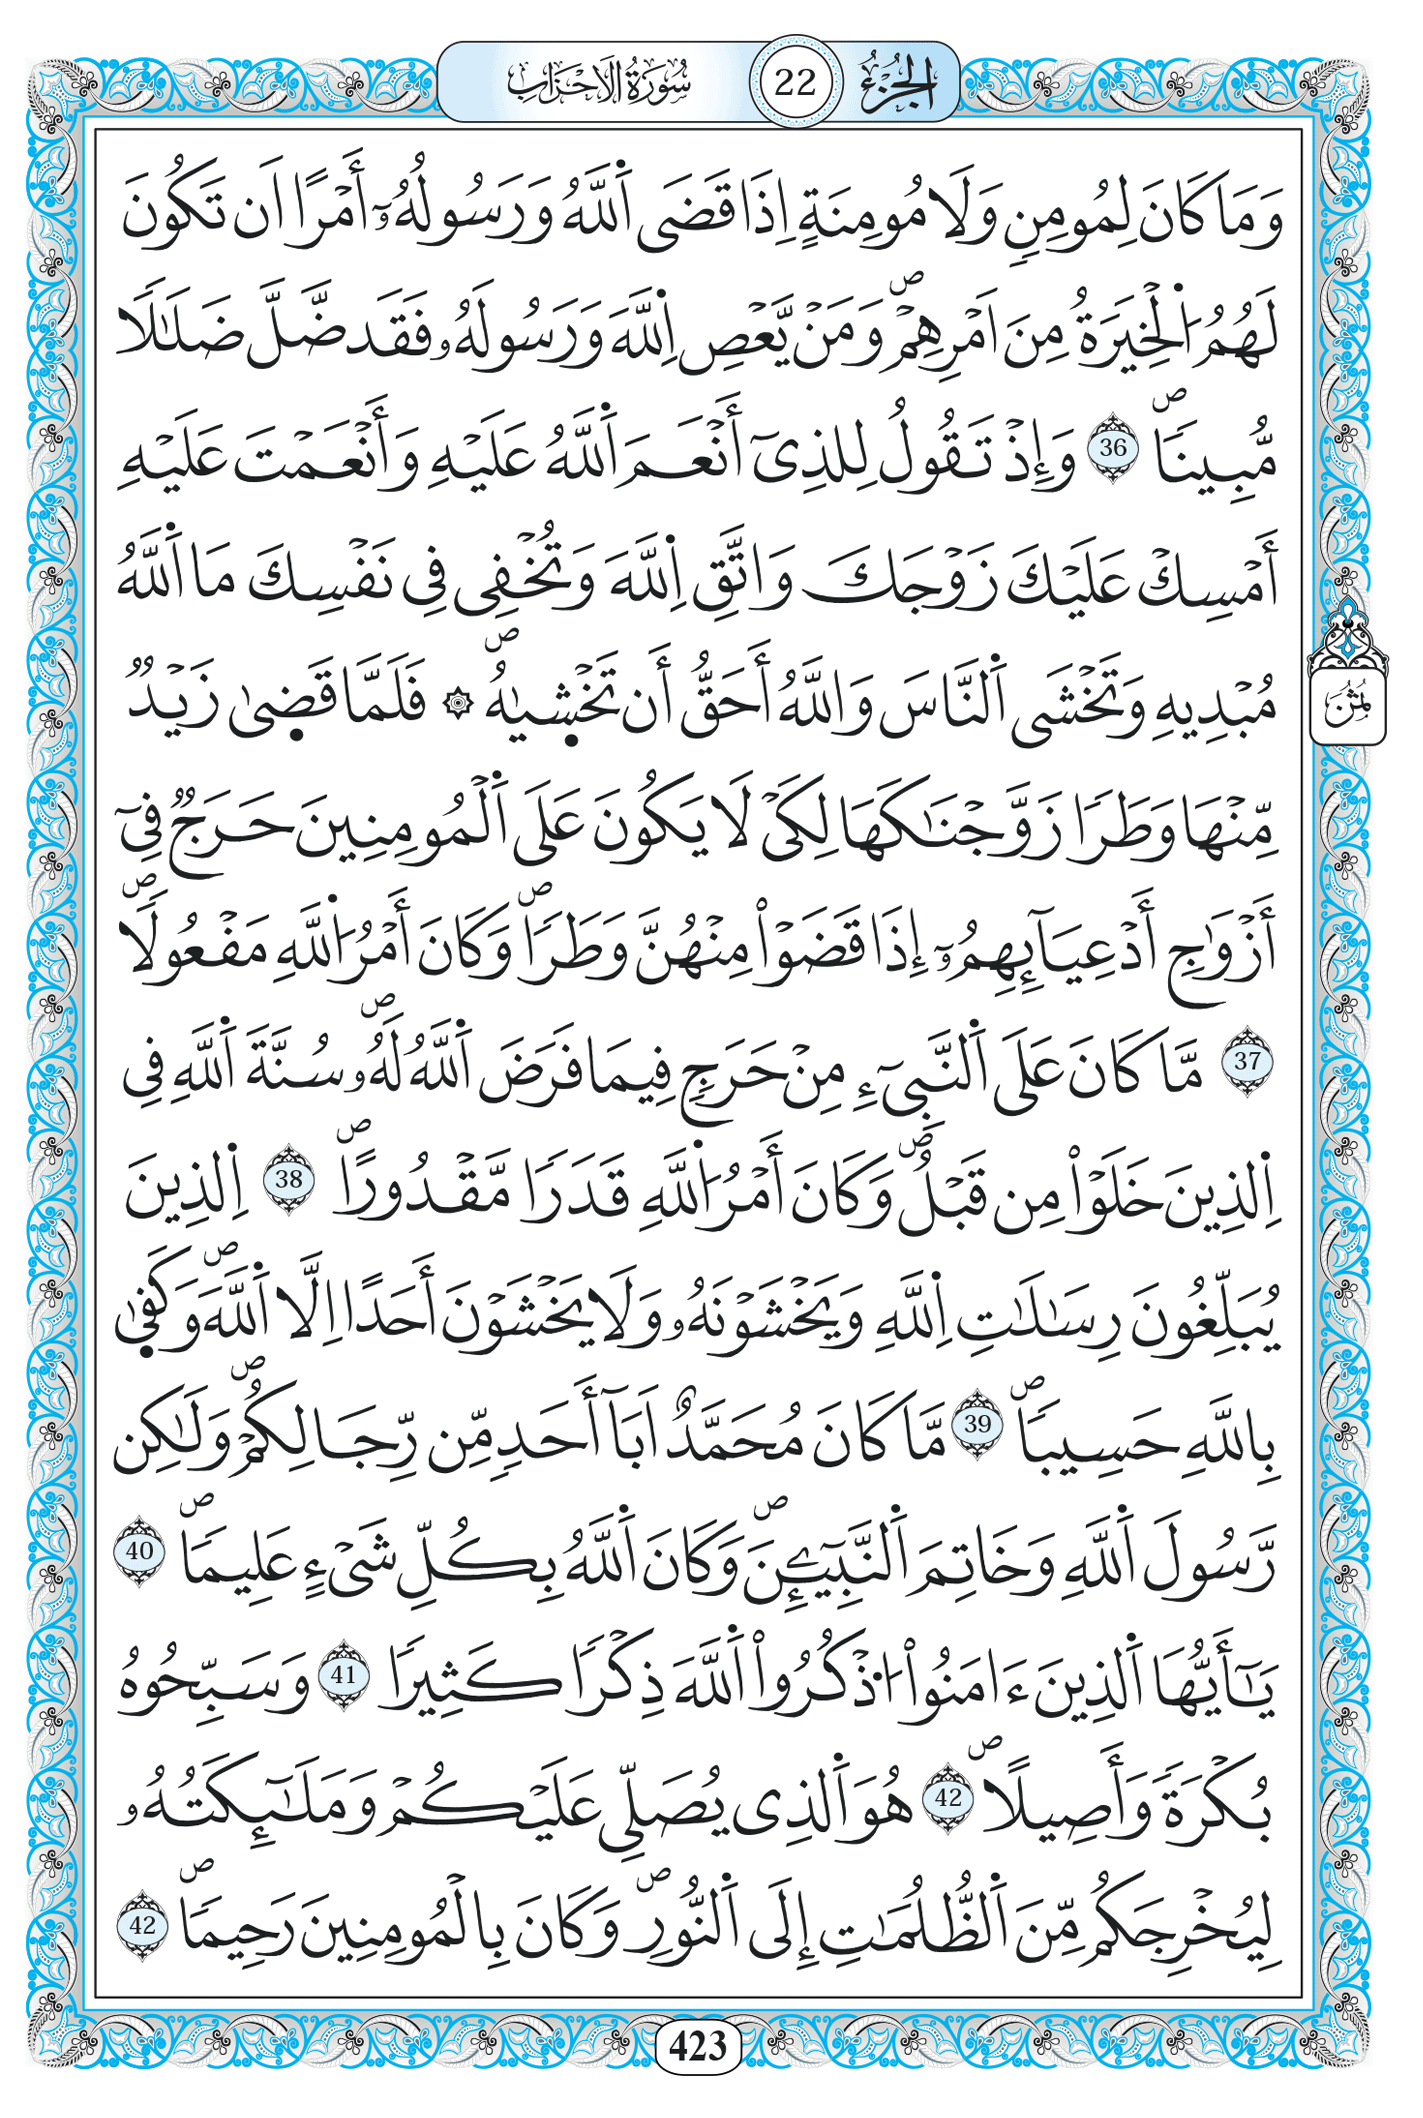 الجزء 22 سورة الاحزاب
وَمَا كَانَ لِمُومِنٖ وَلَا مُومِنَةٍ اِذَا قَضَى اَ۬للَّهُ وَرَسُولُهُۥٓ أَمْرًا اَن تَكُونَ
لَهُمُ اُ۬لْخِيَرَةُ مِنَ اَمْرِهِمْۖ وَمَنْ يَّعْصِ اِ۬للَّهَ وَرَسُولَهُۥ فَقَد ضَّلَّ ضَلَٰلٗا
مُّبِيناٗۖ 36 وَإِذْ تَقُولُ لِلذِےٓ أَنْعَمَ اَ۬للَّهُ عَلَيْهِ وَأَنْعَمْتَ عَلَيْهِ
أَمْسِكْ عَلَيْكَ زَوْجَكَ وَاتَّقِ اِ۬للَّهَ وَتُخْفِے فِے نَفْسِكَ مَا اَ۬للَّهُ
مُبْدِيهِ وَتَخْشَى اَ۬لنَّاسَ وَاللَّهُ أَحَقُّ أَن تَخْش۪يٰهُۖ ۞ فَلَمَّا قَض۪يٰ زَيْدٞ
ثمن
مِّنْهَا وَطَراٗ زَوَّجْنَٰكَهَا لِكَےْ لَا يَكُونَ عَلَى اَ۬لْمُومِنِينَ حَرَجٞ فِےٓ
أَزْوَٰجِ أَدْعِيَآئِهِمُۥٓ إِذَا قَضَوْاْ مِنْهُنَّ وَطَراٗۖ وَكَانَ أَمْرُ اُ۬للَّهِ مَفْعُولاٗۖ
37 مَّا كَانَ عَلَى اَ۬لنَّبِےٓءِ مِنْ حَرَجٖ فِيمَا فَرَضَ اَ۬للَّهُ لَهُۥۖ سُنَّةَ اَ۬للَّهِ فِے
اِ۬لذِينَ خَلَوْاْ مِن قَبْلُۖ وَكَانَ أَمْرُ اُ۬للَّهِ قَدَراٗ مَّقْدُوراًۖ 38 اِ۬لذِينَ
يُبَلِّغُونَ رِسَٰلَٰتِ اِ۬للَّهِ وَيَخْشَوْنَهُۥ وَلَا يَخْشَوْنَ أَحَدًا اِلَّا اَ۬للَّهَۖ وَكَف۪يٰ
بِاللَّهِ حَسِيباٗۖ 39 مَّا كَانَ مُحَمَّدٌ اَبَآ أَحَدٖ مِّن رِّجَالِكُمْۖ وَلَٰكِن
رَّسُولَ اَ۬للَّهِ وَخَاتِمَ اَ۬لنَّبِيٓـِٕينَۖ وَكَانَ اَ۬للَّهُ بِكُلِّ شَےْءٍ عَلِيماٗۖ 40
يَٰٓأَيُّهَا اَ۬لذِينَ ءَامَنُواْ اُ۟ذْكُرُواْ اُ۬للَّهَ ذِكْراٗ كَثِيراٗ 41 وَسَبِّحُوهُ
بُكْرَةٗ وَأَصِيلاًۖ 42 هُوَ اَ۬لذِے يُصَلِّے عَلَيْكُمْ وَمَلَٰٓئِكَتُهُۥ
لِيُخْرِجَكُم مِّنَ اَ۬لظُّلُمَٰتِ إِلَى اَ۬لنُّورِۖ وَكَانَ بِالْمُومِنِينَ رَحِيماٗۖ 42
423